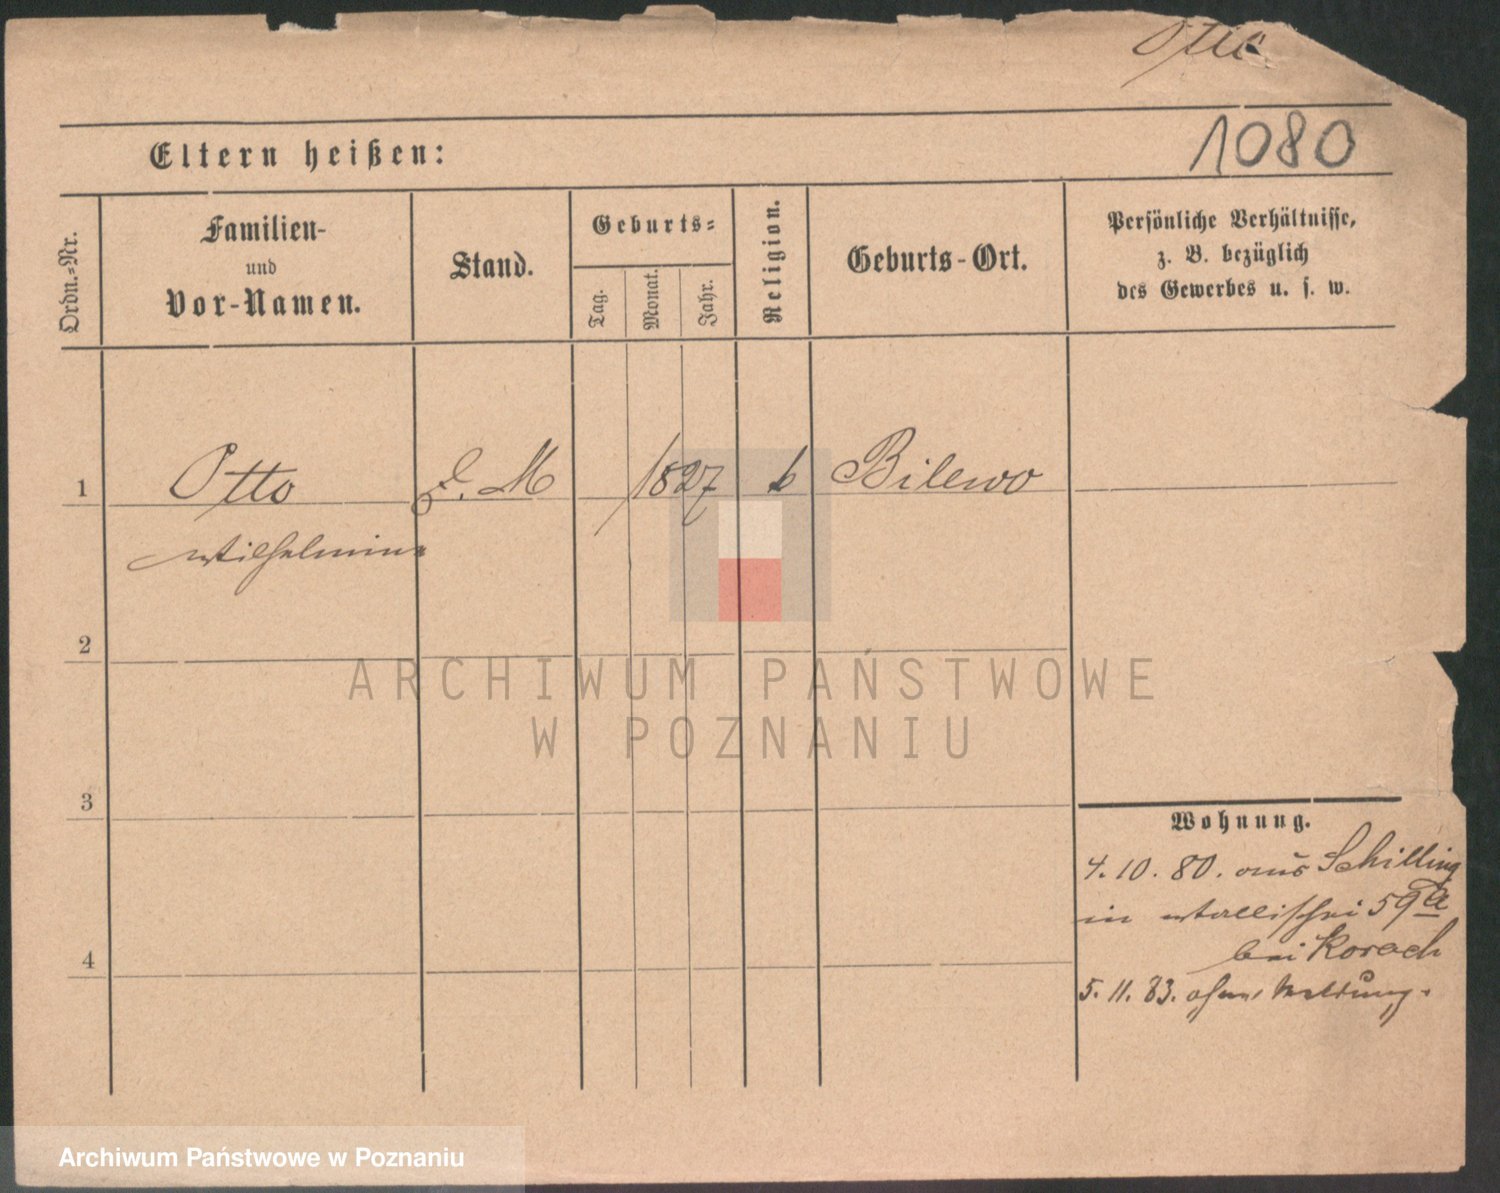 Otto
1080
Eltern heißen:
Ordn.=Nr.
Familien-
und
Vor-Namen.
Stand.
Geburts=
Tag.
Monat.
Jahr.
Religion.
Geburts-Ort.
Persönliche Verhältnisse,
z. B. bezüglich
des Gewerbes u. s. w.
1
Otto
M
1827
Bilewo
Wilhelmine
2
3
4
Wohnung.
4. 10. 80. aus Schilling
in Wallischei 59a
bei Korach
5. 11. 83. ohne Meldung.
ARCHIWUM PAŃSTWOWE
W POZNANIU
Archiwum Państwowe w Poznaniu